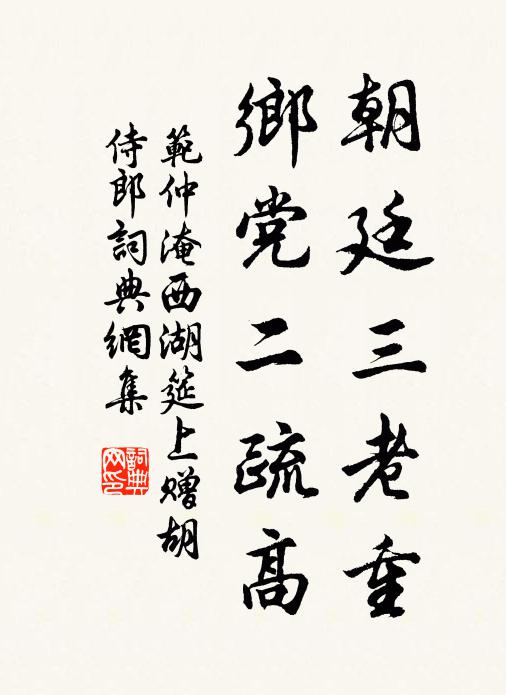 朝廷三老重
鄉党二疏高
範仲淹西湖筵上赠胡
侍郎詞典網集
詞典
网印